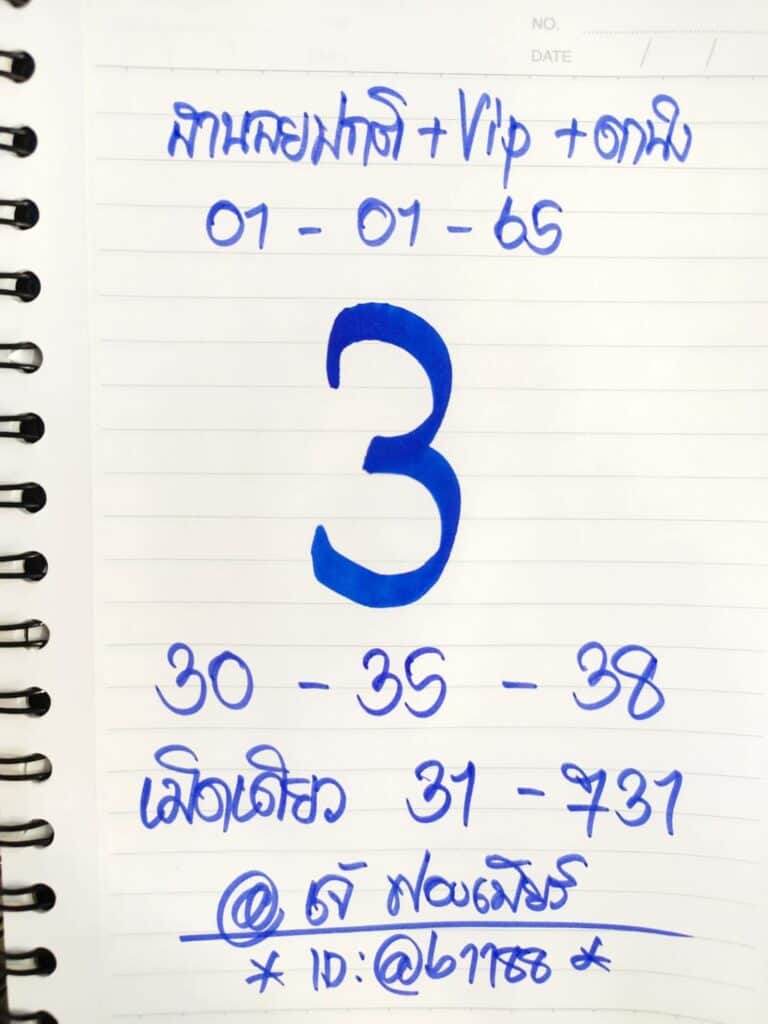 NO.
DATE / /
ฮานอยปกติ + Vip +
01 - 01 - 65
3
30 - 35 - 38
เม็ดเดียว 31 - 731
@ เจ๊ ฟองเบียร์
* ID: @b7788 *